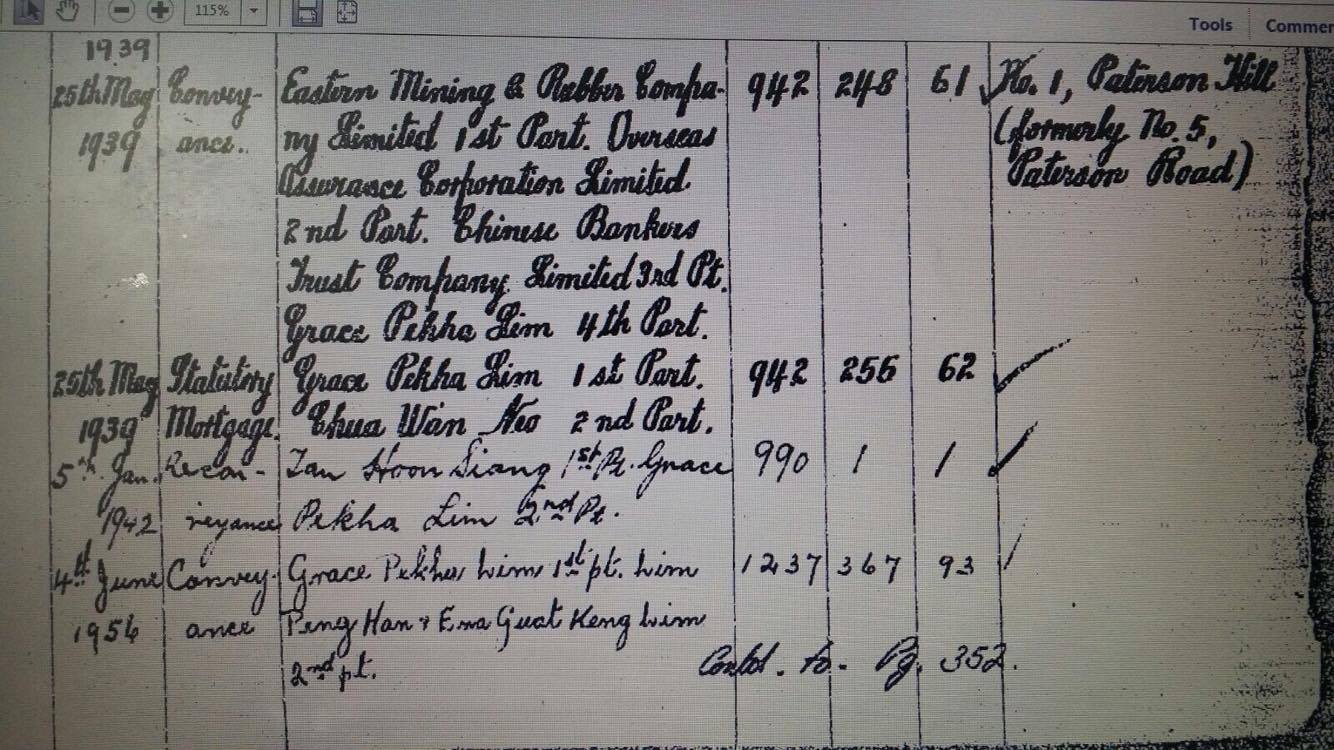 115%
Tools Commen
1939
25th May Convey- Eastern Mining & Rubber Compa- 942 248 61 No. 1, Paterson Hill
1939 ance. ny Limited 1st Part. Overseas (formerly No. 5,
Assurance Corporation Limited Paterson Road)
2nd Part. Chinese Bankers
Trust Company Limited 3rd Pt.
Grace Pekha Lim 4th Part.
25th May Statutory Grace Pekha Lim 1st Part. 942 256 62
1939 Mortgage. Chua Wan Neo 2nd Part.
5th Jan. Recon- Tan Hoon Siang 1st Pt. Grace 990 1 1
1942 veyance Pekha Lim 2nd Pt.
4th June Convey- Grace Pekha Lim 1st pt. Lim 1237 367 93
1954 ance Peng Han & Ena Guat Keng Lim
2nd pt. Contd. to. Pg. 352.